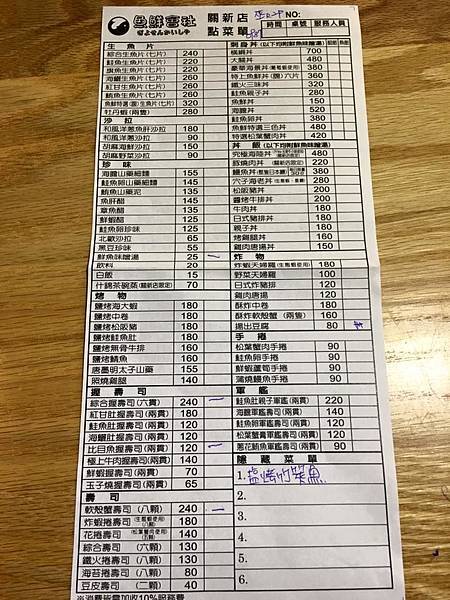 魚鮮會社
ぎょせんかいしゃ
關新店
點菜單
NO:
時間 桌號 服務人員
生魚片
綜合生魚片(七片) 240
鮭魚生魚片(七片) 220
旗魚生魚片(七片) 220
海鱺生魚片(七片) 260
紅甘生魚片(七片) 260
鮪魚生魚片(七片) 260
魚鮮特選(圓)生魚片(七片) 320
牡丹蝦(兩隻) 280
沙拉
和風洋蔥魚肝沙拉 180
和風洋蔥沙拉 90
胡麻海鮮沙拉 150
胡麻野菜沙拉 90
珍味
海鐵山藥細麵 155
鮭魚卵山藥細麵 145
鮪魚山藥泥 135
魚肝醋 145
章魚醋 135
鮮蚵醋 125
鮭魚卵珍味 125
北歐沙拉 65
黑豆珍味 55
鮮魚味噌湯 25 一
飲料 20
白飯 15
什錦茶碗蒸(關新店限定) 70
烤物
鹽烤海大蝦 180
鹽烤中卷 180
鹽烤松阪豬 180
鹽烤鮭魚肚 180
鹽烤無骨牛排 160
鹽烤鯖魚 160
唐墨明太子山藥 155
照燒雞腿 140
握壽司
綜合握壽司(六貫) 240 一
紅甘肚握壽司(兩貫) 180
鮭魚肚握壽司(兩貫) 120
海鱺肚握壽司(兩貫) 120
比目魚握壽司(兩貫) 160 一
極上牛肉握壽司(兩貫) 140
鮮蝦握壽司(兩貫) 70
玉子燒握壽司(兩貫) 65
壽司
軟殼蟹壽司(八顆) 240 一
炸蝦捲壽司 180
花捲壽司 140
綜合壽司(八顆) 130
鐵火捲壽司(八顆) 130
海苔捲壽司(八顆) 80
豆皮壽司(二顆) 40
※消費皆需加收10%服務費
刺身丼(以下均附鮮魚味噌湯)
橫綱丼 700
大關丼 480
豪華海景丼 380
特上魚鮮丼(圓)六片 360
鐵火三味丼 320
鮭魚親子丼 280
魚鮮丼 150
海膽丼 520
鮭魚卵丼 380
魚鮮特選三色丼 480
特選松葉蟹肉丼 420
丼飯(以下均附鮮魚味噌湯)
究極海陸丼 480
豚燒肉丼 220
鰻魚丼 380
穴子海老丼 280
松阪豬丼 200
醬烤牛排丼 200
牛肉丼 180
日式豬排丼 180
親子丼 180
烤雞腿丼 160
雞肉唐揚丼 150
炸物
炸蝦天婦羅 180
野菜天婦羅 100
日式炸豬排 120
雞肉唐揚 120
酥炸中卷 180
酥炸軟殼蟹(兩隻) 160
揚出豆腐 80
手捲
松葉蟹肉手捲 90
鮭魚卵手捲 90
鮮蝦蘆筍手捲 90
蒲燒鰻魚手捲 90
軍艦
鮭魚肚親子軍艦(兩貫) 220
海膽軍艦壽司(兩貫) 140
鮭魚卵軍艦壽司(兩貫) 120
松葉蟹膏軍艦壽司(兩貫) 120
蔥花鮪魚軍艦壽司(兩貫) 90
隱藏菜單
1.塩烤竹筴魚
2.
3.
4.
5.
6.